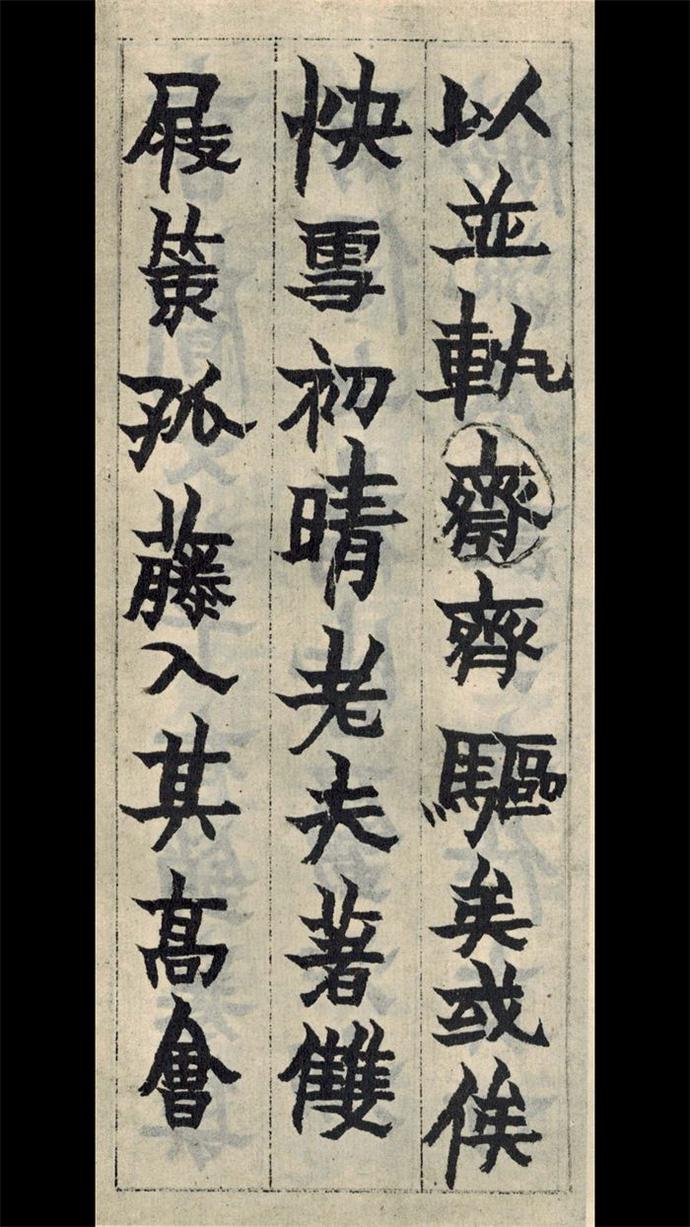 以並執齋齊驅矣或俟
快雪初晴老夫著雙
屐策孤藤入其高會